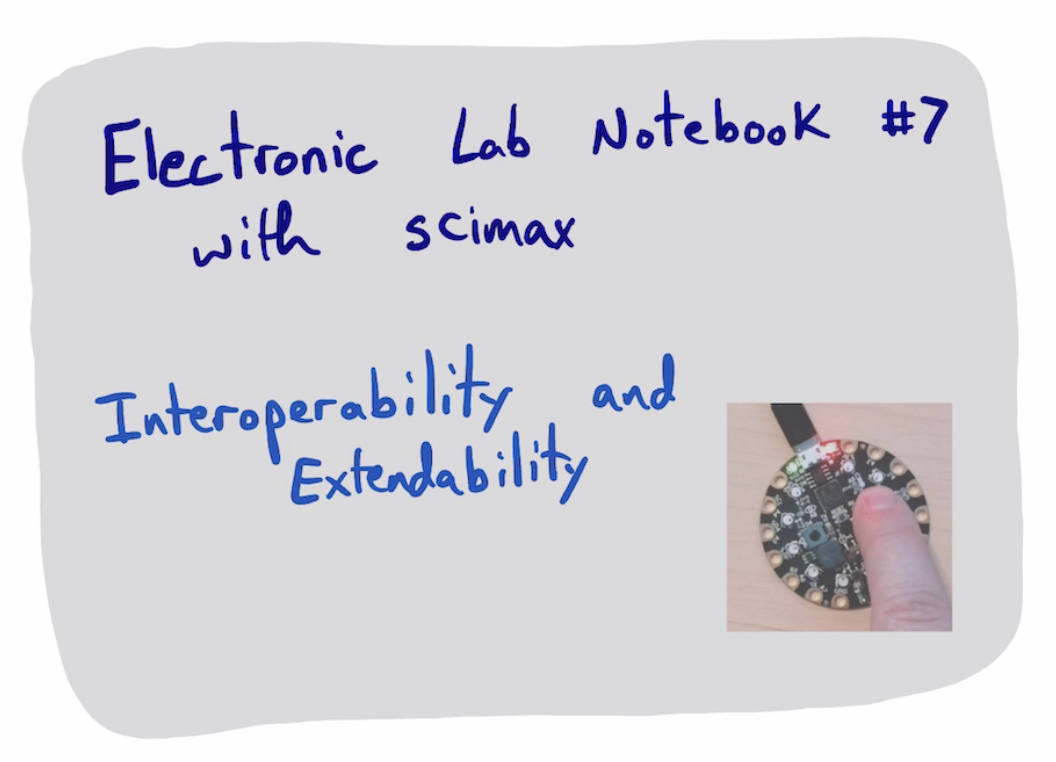 Electronic Lab Notebook #7
with scimax
Interoperability and
Extendability